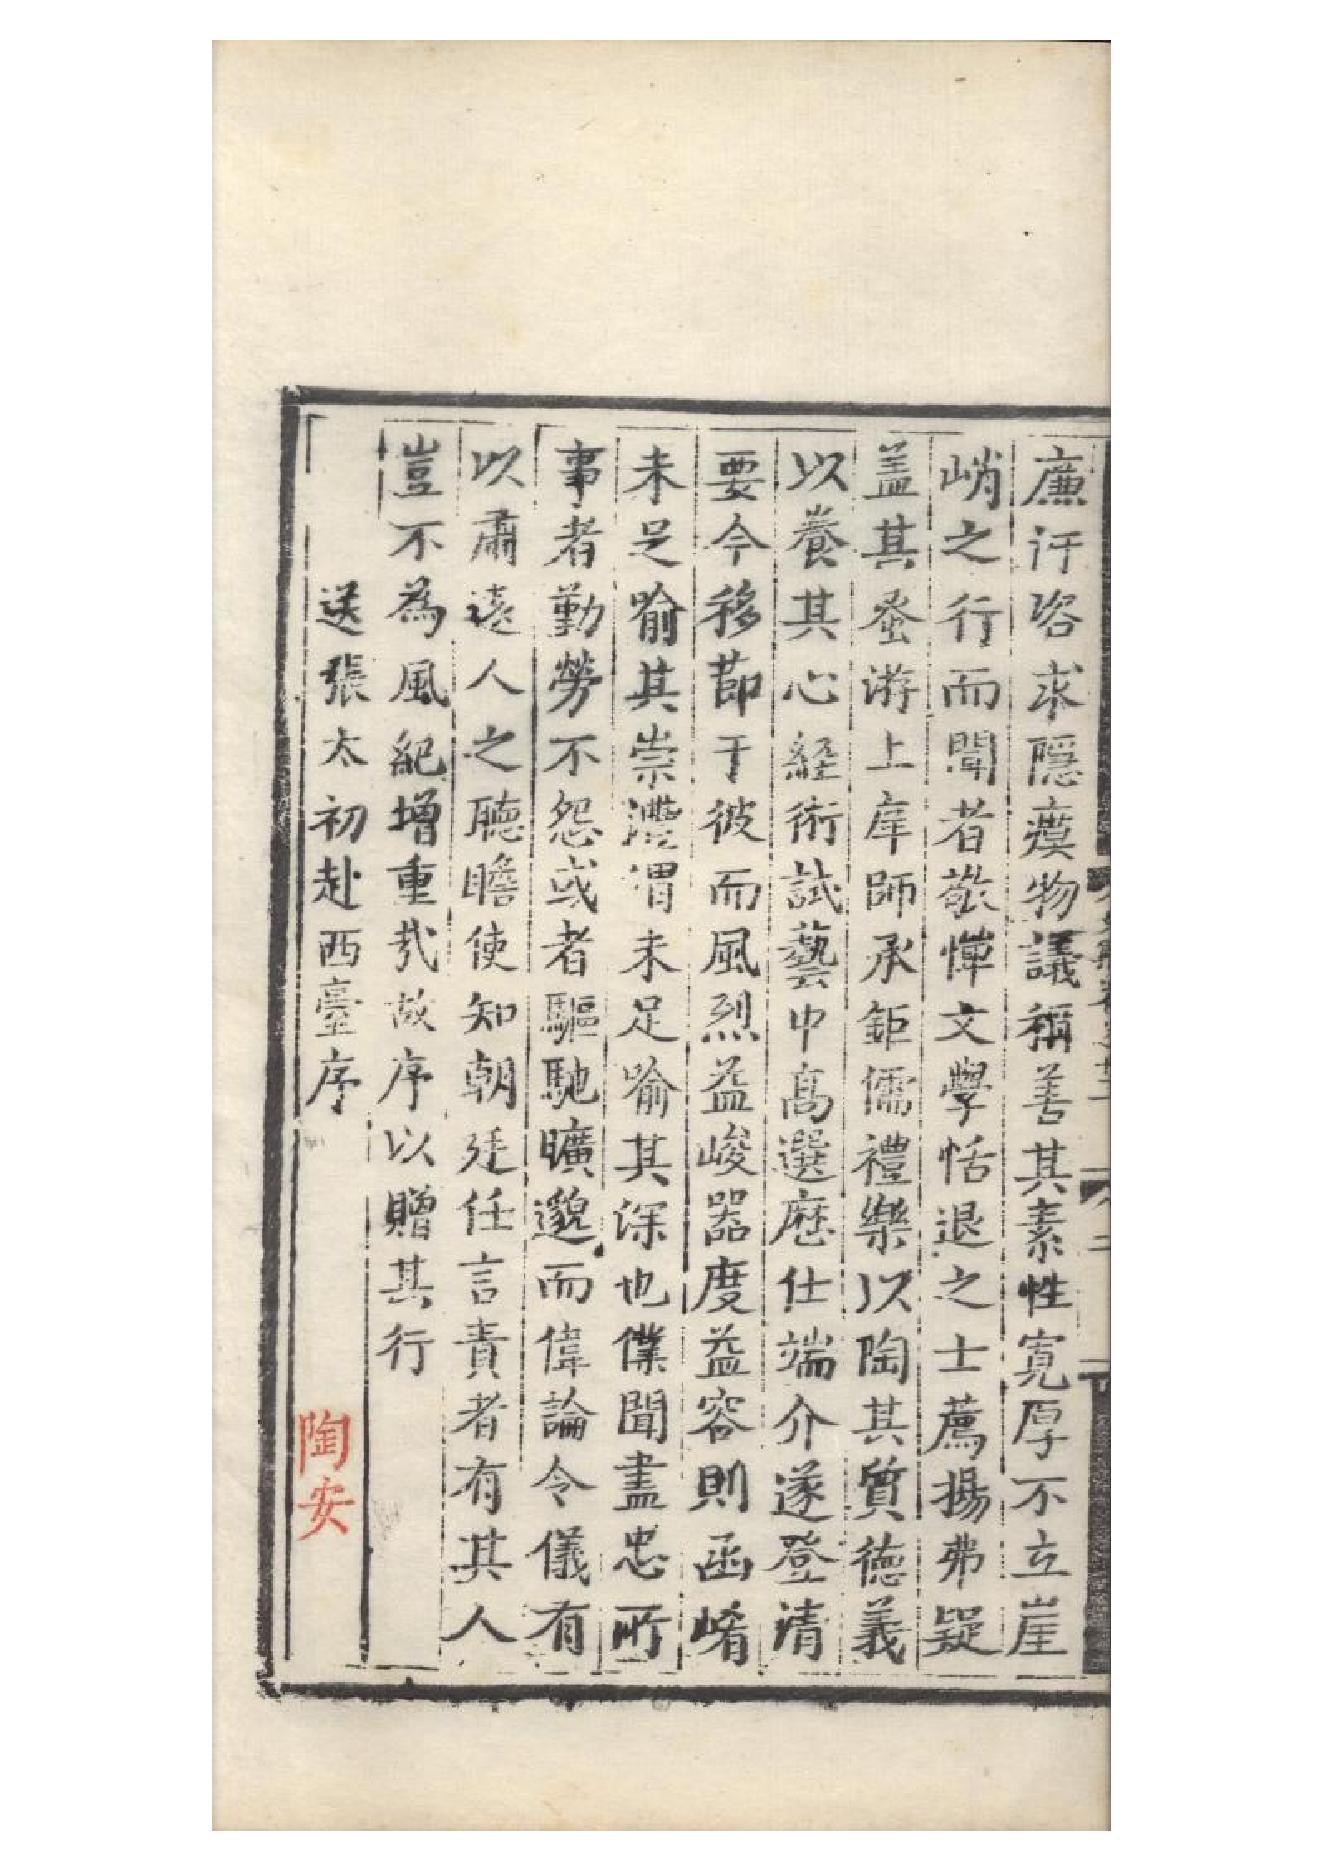 廉汙咨求隱瘼物議稱善其素性寬厚不立崖
峭之行而聞者敬憚文學恬退之士薦揚弗疑
盖其蚤游上庠師承鉅儒禮樂以陶其質徳義
以養其心経術試藝中髙選歴仕端介遂登清
要今移莭于彼而風烈益峻器度益容則函崤
未足喻其崇灃渭未足喻其深也僕聞盡忠所
事者勤勞不怨或者驅馳曠邈而偉論令儀有
以肅逺人之聴瞻使知朝廷任言責者有其人
豈不為風紀增重㢤故序以贈其行
送張太初赴西臺序
陶安